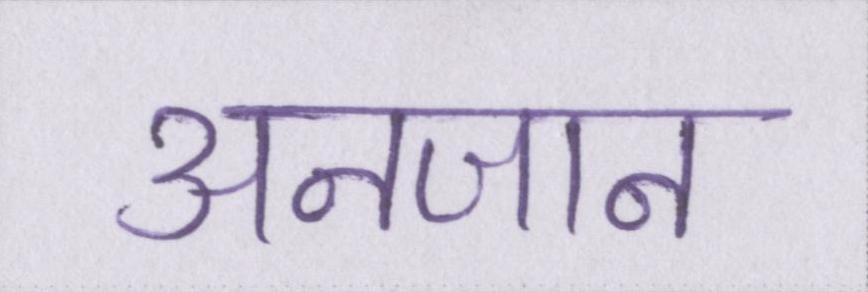 अनजान